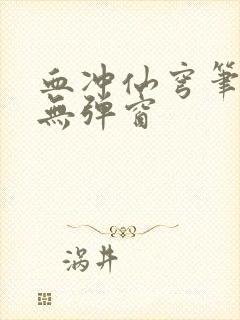 血冲仙穹筆
無弹窗
涡井